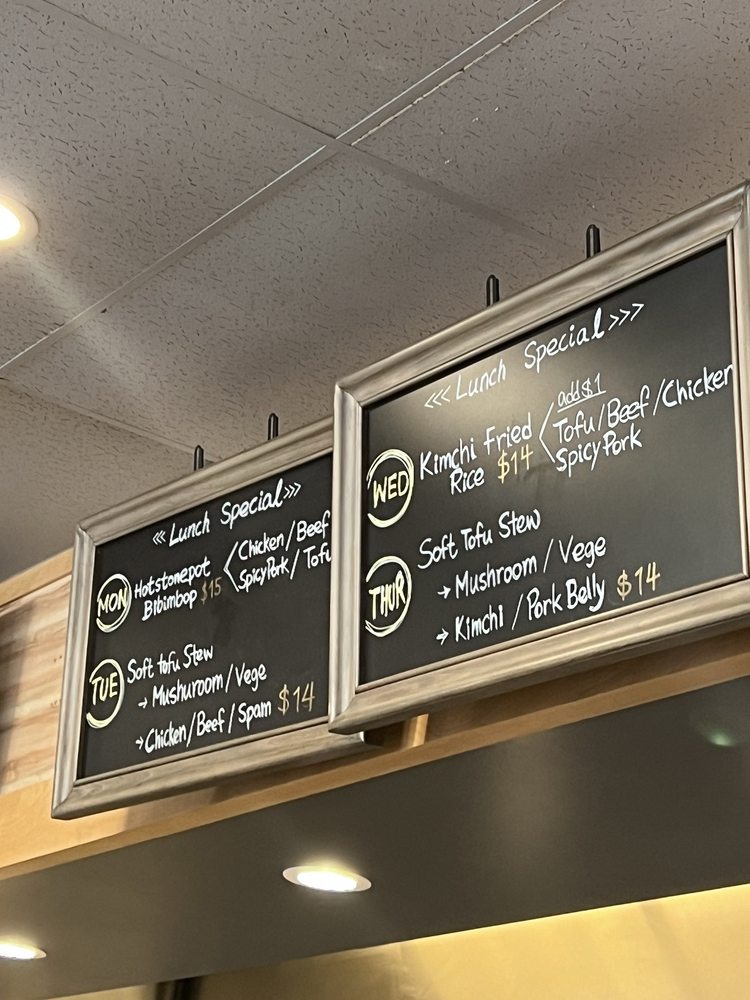 <<Lunch Special>>
MON
Hotstonepot
Bibimbop $15
Chicken/Beef
SpicyPork/Tofu
TUE
Soft tofu Stew
→ Mushuroom/Vege
→Chicken/Beef/Spam $14
<<<Lunch Special>>>
WED
Kimchi Fried
Rice $14
add $1
Tofu/Beef/Chicken
SpicyPork
THUR
Soft Tofu Stew
→ Mushroom/Vege
→ Kimchi/Pork Belly $14